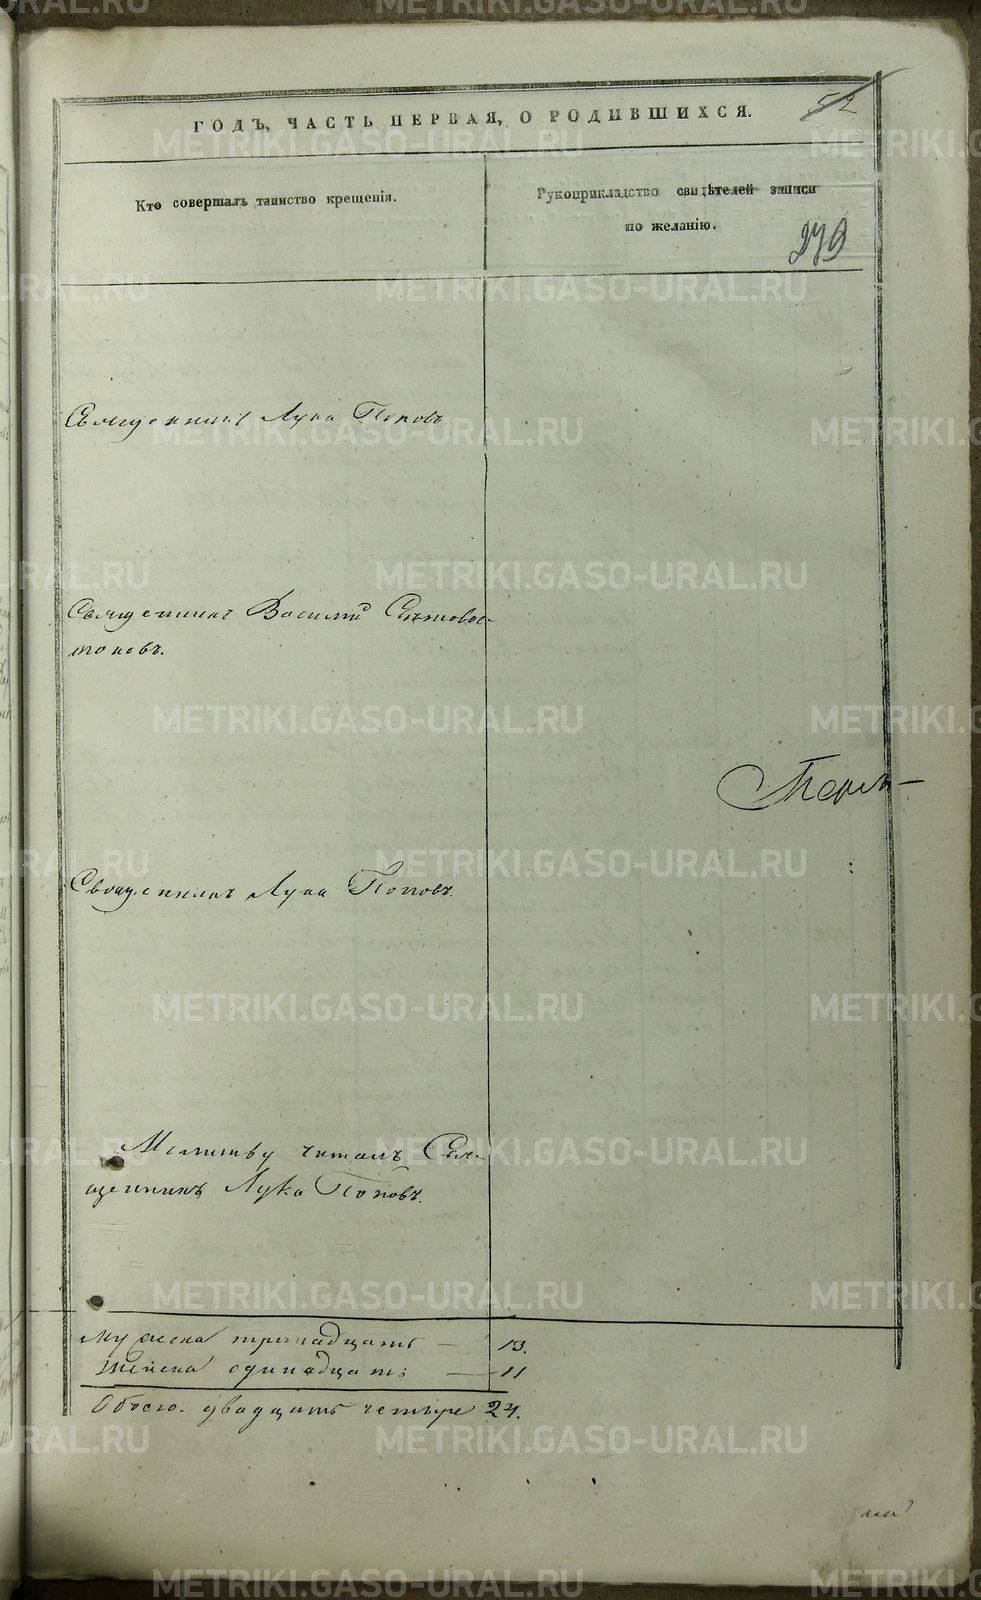 52
ГОДЪ, ЧАСТЬ ПЕРВАЯ, О РОДИВШИХСЯ.
Кто совершалъ таинство крещенія.
Рукоприкладство свидѣтелей записи
по желанію.
279
Священникъ Лука Поповъ
Священникъ Василій
топовъ.
Священникъ Лука Поповъ.
Молитву читалъ Свя-
щенникъ Лука Поповъ.
Мужеска тринадцать — 13.
Женска одинадцать — 11
Обоего двадцать четыре 24.
METRIKI.GASO-URAL.RU